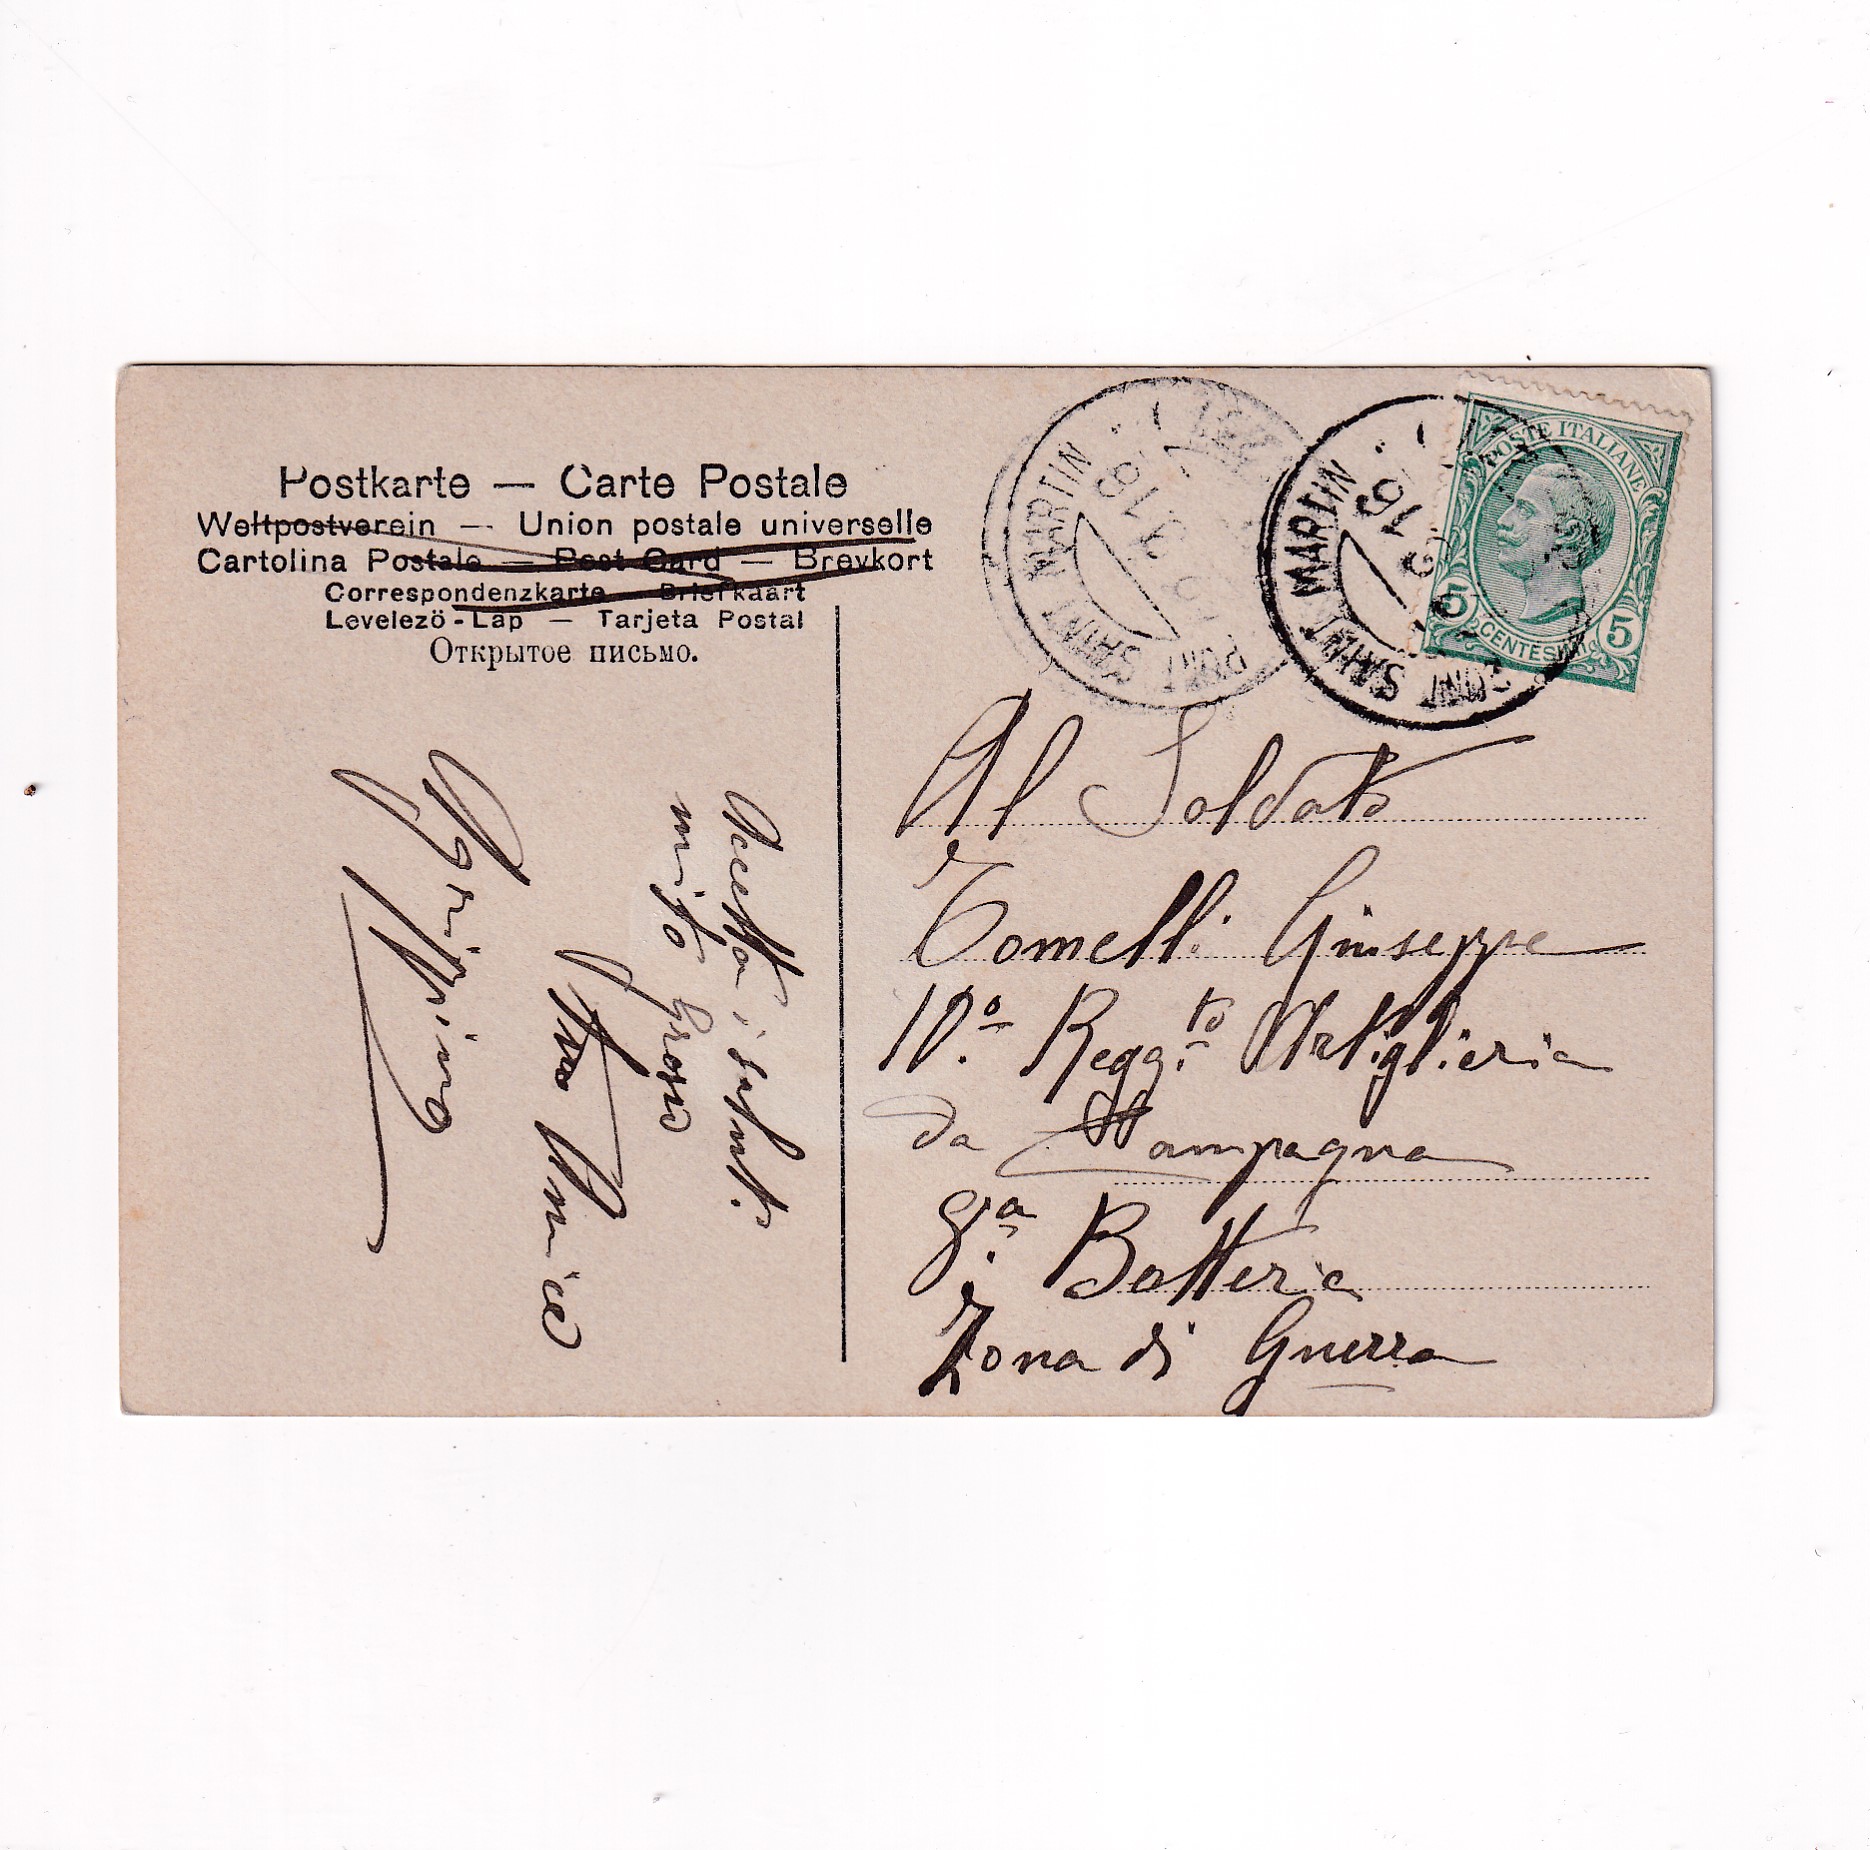 Postkarte — Carte Postale
Weltpostverein — Union postale universelle
Cartolina Postale — Post Card — Brevkort
Correspondenzkarte — Briefkaart
Levelezö-Lap — Tarjeta Postal
Открытое письмо.
PONT SAINT MARTIN
16
PONT SAINT MARTIN
16
POSTE ITALIANE
5 5
CENTESIMI
Accetta i saluti
mito Grosso
Tuo Amico
Agrippino
Al Soldato
Tomelli Giuseppe
10º. Regg.to Artiglieria
da Campagna
8.a Batteria
Zona di Guerra